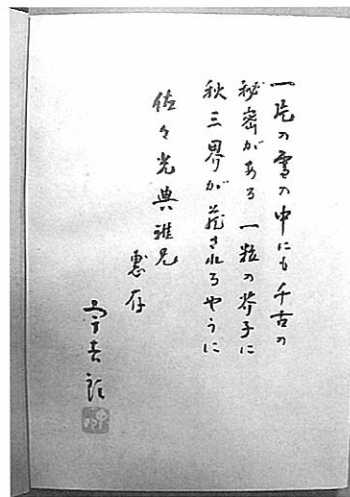 一片の雪の中にも千古の
秘密がある 一粒の芥子に
秋三界が蔵されるやうに
佐々光典雅兄
恵存
宇吉郎